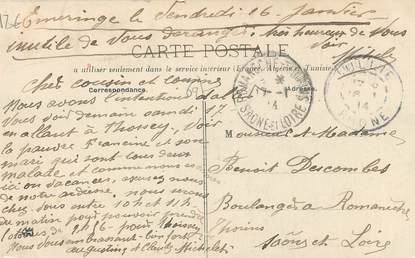 Emeringe le Vendredi 16 Janvier
inutile de vous déranger, très heureux de vous
voir
CARTE POSTALE
à utiliser seulement dans le service intérieur (France, Algérie et Tunisie)
Correspondance
Cher cousin et cousine
Nous avons l'intention d'aller
vous voir demain samedi 17
en allant à Thoissey, voir
la pauvre Francine et son
mari qui sont tous deux
malade et comme nous
ici en vacances,
de notre nous serons
chez vous entre 10h et 11h
du matin pour pouvoir prendre
de 2h16 pour Thoissey
Nous vous embrassant bien fort
Augustine et Claude Michelet
Monsieur et Madame
Benoit Descombes
Boulanger à Romanèche
Thorins
Saône et Loire